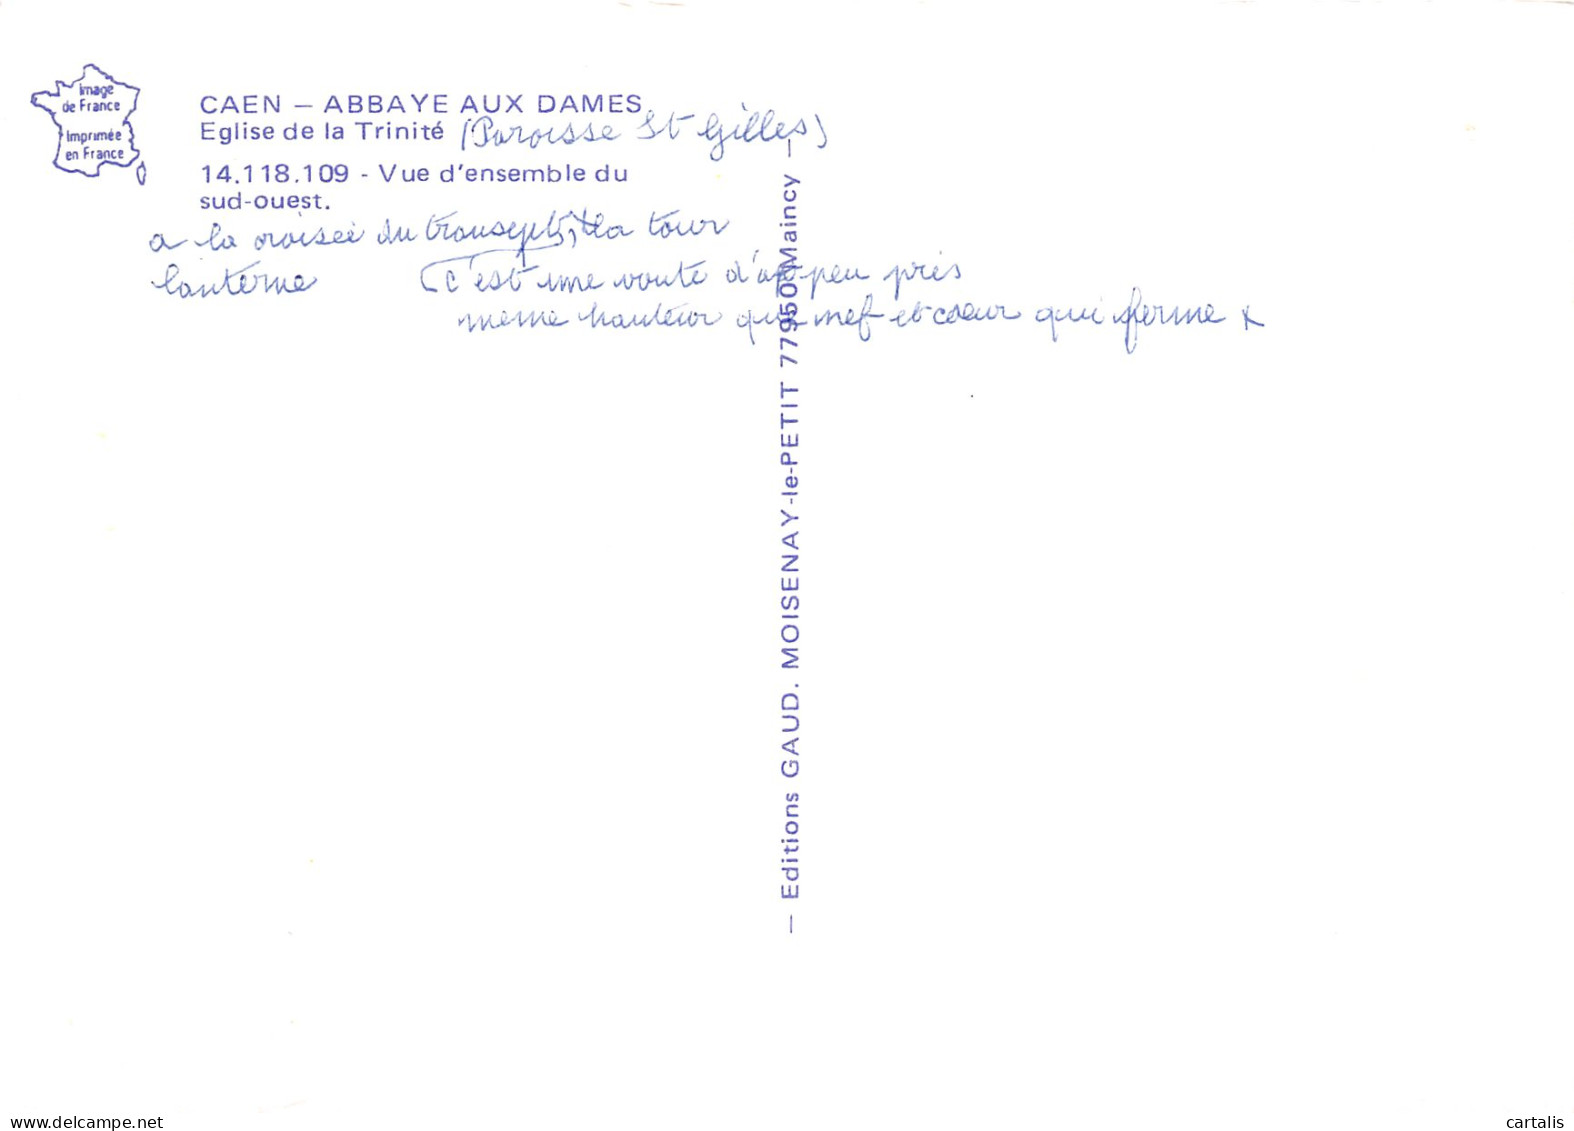 Image
de France
Imprimée
en France
CAEN – ABBAYE AUX DAMES
Eglise de la Trinité (Paroisse St Gilles)
14.118.109 - Vue d'ensemble du
sud-ouest.
a la croisée du transept, x la tour
lanterne
(c'est une voute d'a peu près
meme hauteur que nef et coeur qui ferme x
— Editions GAUD. MOISENAY-le-PETIT 77950 Maincy —
www.delcampe.net
cartalis